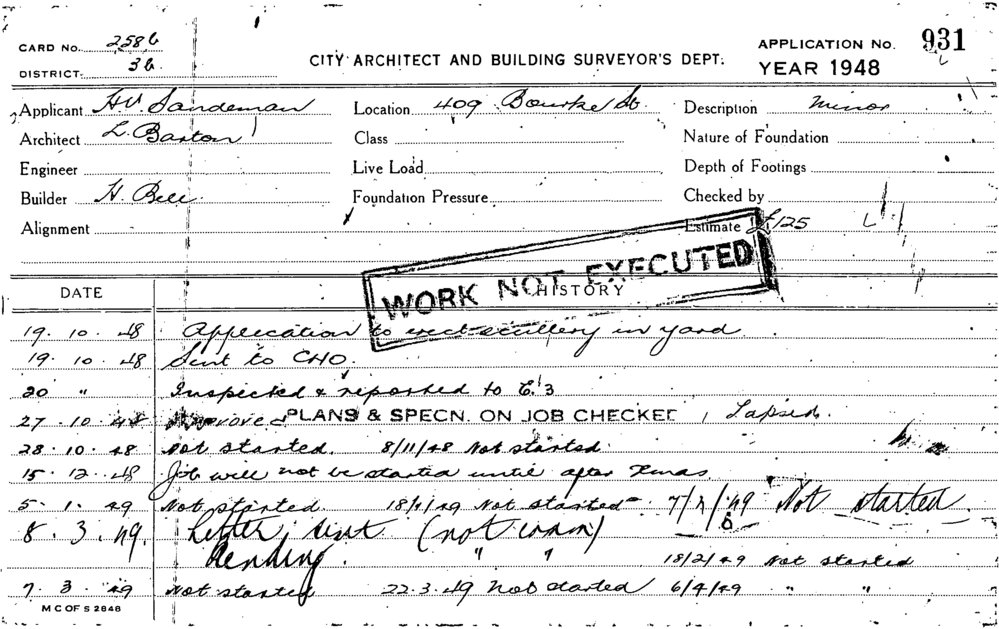 CARD No. 2586
DISTRICT. 36.
CITY ARCHITECT AND BUILDING SURVEYOR'S DEPT.
APPLICATION No. 931
YEAR 1948
Applicant Hy. Sandeman Location 409 Bourke St. Description Minor
Architect L. Barton Class Nature of Foundation
Engineer Live Load Depth of Footings
Builder H. Bell Foundation Pressure Checked by
Alignment Estimate £125
WORK NOT EXECUTED
DATE HISTORY
19. 10. 48 Application to erect scullery in yard
19. 10. 48 Sent to CHO.
20 " Inspected & reported to E.3
27. 10. 48 Approved PLANS & SPECN. ON JOB CHECKED, Lapsed.
28. 10. 48 Not started. 8/11/48 Not started.
15. 12. 48 Job will not be started until after Xmas.
5. 1. 49 Not started. 18/1/49 Not started - 7/2/49 Not started.
8. 3. 49. Letter sent (not comm)
Pending. " " 18/2/49 Not started
7. 3. 49 Not started 22.3.49 Not started 6/4/49 " "
M C OF S 2848